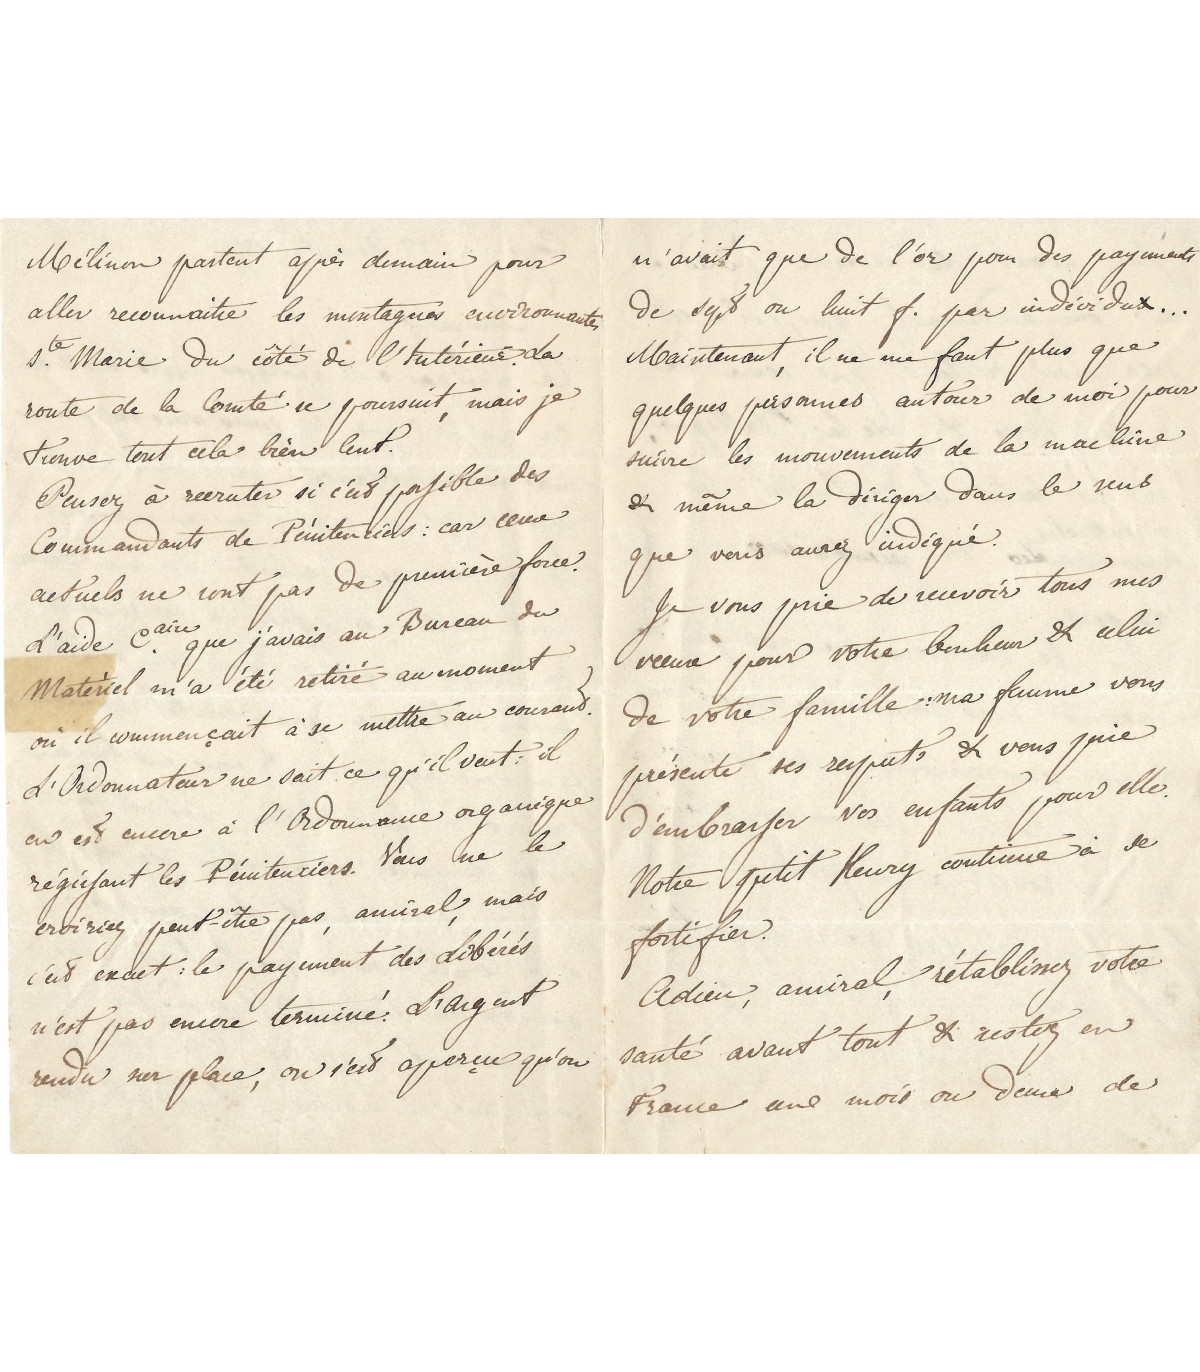 Mélinon partent après demain pour
aller reconnaitre les montagnes environnantes
Ste. Marie du côté de l'Intérieur. La
route de la Comté se poursuit, mais je
trouve tout cela bien lent.
Pensez à recruter si c'est possible des
Commandants de Pénitenciers : car ceux
actuels ne sont pas de première force.
L'aide C.aire que j'avais au Bureau du
Matériel m'a été retiré au moment
où il commençait à se mettre au courant.
L'Ordonnateur ne sait ce qu'il veut : il
en est encore à l'Ordonnance organique
régissant les Pénitenciers. Vous ne le
croiriez peut-être pas, amiral, mais
c'est exact : le payement des Libérés
n'est pas encore terminé. L'Argent
rendu sur place, on s'est aperçu qu'on
n'avait que de l'or pour des payements
de sept ou huit f. par individu...
Maintenant, il ne me faut plus que
quelques personnes autour de moi pour
suivre les mouvements de la machine
& même la diriger dans le sens
que vous aurez indiqué.
Je vous prie de recevoir tous mes
vœux pour votre bonheur & celui
de votre famille : ma femme vous
présente ses respects & vous prie
d'embrasser vos enfants pour elle.
Notre petit Henry continue à se
fortifier.
Adieu, amiral, rétablissez votre
santé avant tout & restez en
France une mois ou deux de